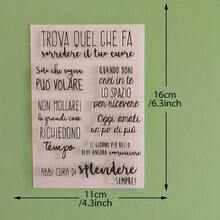 TROVA QUEL CHE FA
sorridere il tuo cuore
Solo chi sogna
PUÒ VOLARE
QUANDO DONI
crei in te
LO SPAZIO
per ricevere
NON MOLLARE!
le grandi cose
RICHIEDONO
tempo
Oggi amati
un po' di più
IL GIORNO PIÙ BELLO
DEVE ANCORA cominciare
ABBI CURA DI splendere
...SEMPRE!
16cm
/6.3inch
11cm
/4.3inch